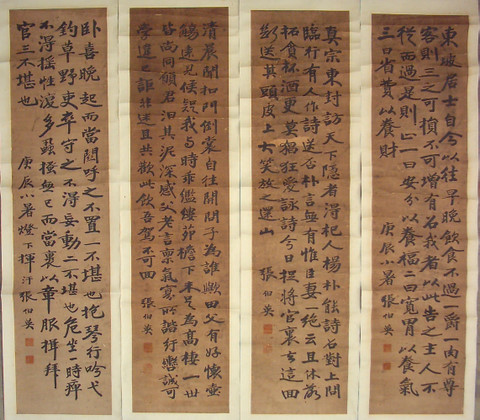 東坡居士自今以往早晚飲食不過一爵一肉有尊
客則三之可損不可增有召我者以此告之主人不
從而過是則止一曰安分以養福二曰寬胃以養氣
三曰省費以養財 庚辰小暑 張伯英
真宗東封訪天下隱者得杞人楊朴能詩召對上問
臨行有人作詩送否朴言無有惟臣妻一絕云且休落
拓貪杯酒更莫猖狂愛詠詩今日捉將官裏去這回
斷送頭皮上大笑放還山 張伯英
清晨聞扣門倒裳自往開問子為誰歟田父有好懷壺
觴遠見候疑我與時乖繿縷茆檐下未足為高棲一世
皆尚同願君汩其泥深感父老言稟氣寡所諧紆轡誠可
學違己詎非迷且共歡此飲吾駕不可回 張伯英
臥喜晚起而當關呼之不置一不堪也抱琴行吟弋
釣草野吏卒守之不得妄動二不堪也危坐一時痺
不得搖性復多蝨搔無已而當裹以章服揖拜
官三不堪也 庚辰小暑燈下揮汗張伯英